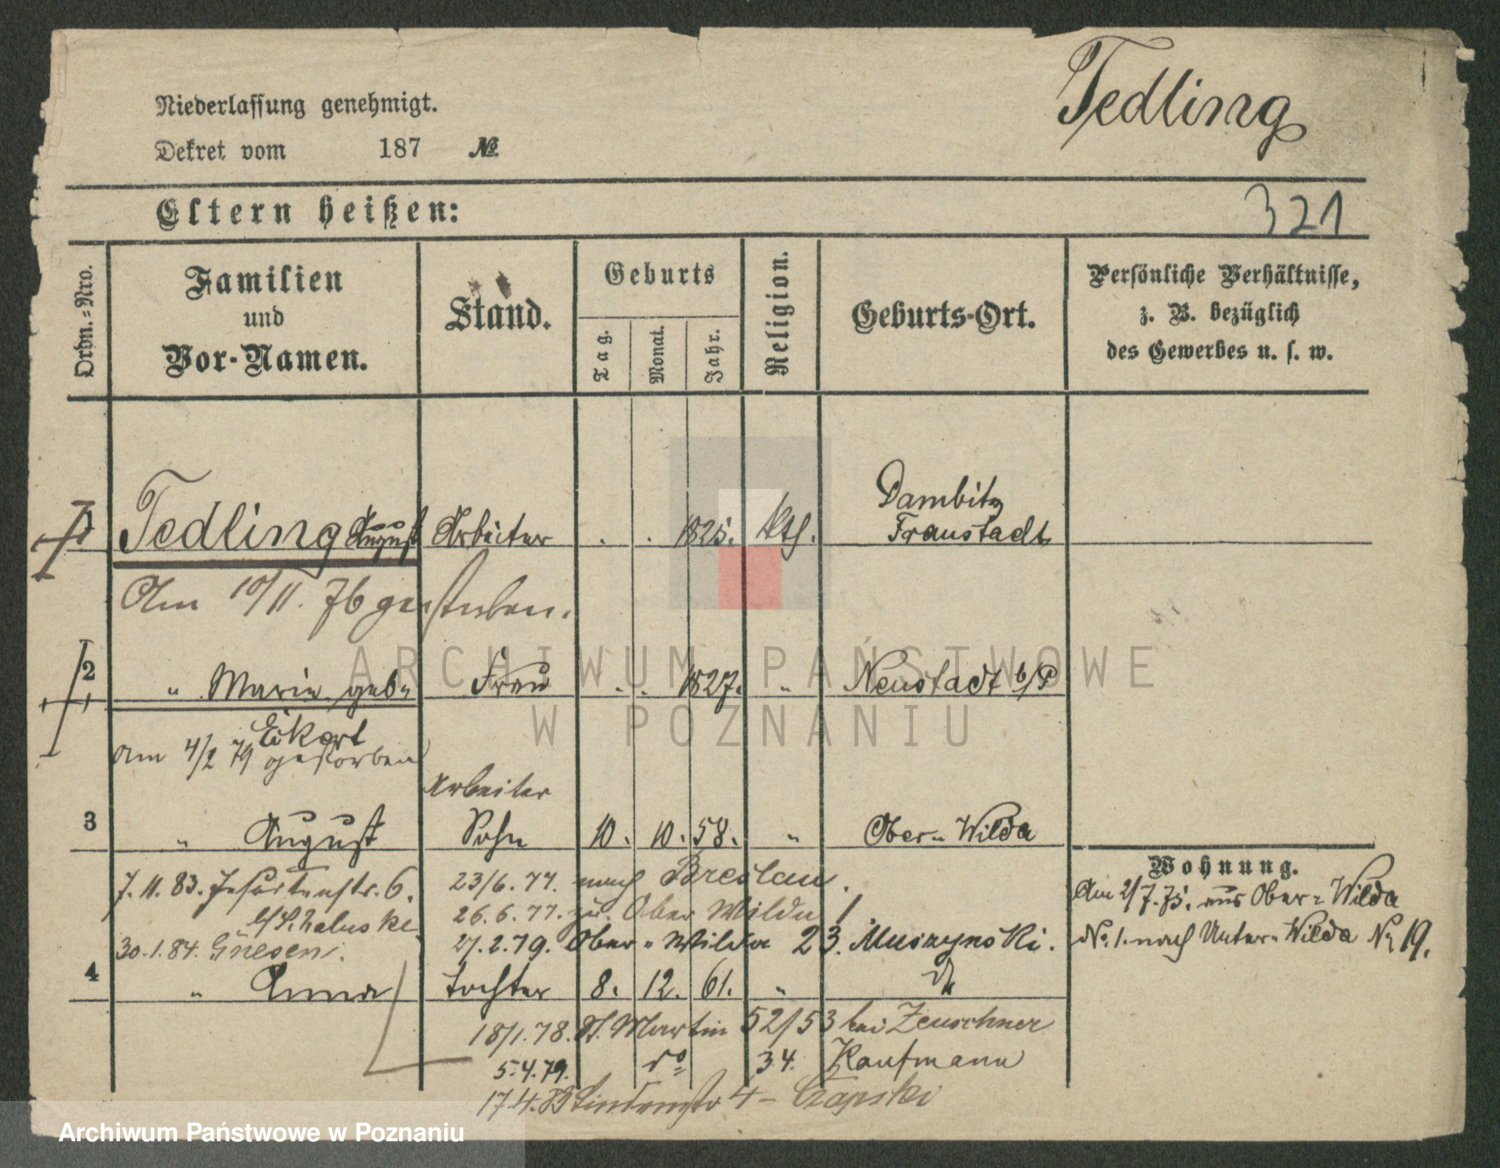 Tedling
Niederlassung genehmigt.
Dekret vom 187 №
Eltern heißen:
321
Ordn.-Nro.
Familien
und
Vor-Namen.
Stand.
Geburts
Tag.
Monat.
Jahr.
Religion.
Geburts-Ort.
Persönliche Verhältnisse,
z. B. bezüglich
des Gewerbes u. s. w.
Dambitz
1 Tedling August Arbeiter . . 1825. kth. Fraustadt
Am 10/11. 76 gestorben.
2 " Marie geb. Frau . . 1827. " Neustadt b/P
Eckert
am 4/2 79 gestorben
Arbeiter
3 " August Sohn 10. 10. 58. " Ober-Wilda
Wohnung.
7.11.83. 6. 23/6.77. nach Breslau.
Am 2/7.75. aus Ober-Wilda
26.6.77. Ober Wilda 1
No. 1. nach Unter-Wilda No 19.
30.1.84. Gnesen. 27.2.79. Ober-Wilda 23. Muszynski.
4 " Anna Tochter 8. 12. 61. "
18/1.78. St. Martin 52/53 bei Zeuschner
5.4.79. do 34. Kaufmann
17.4. 4 - Czapski
ARCHIWUM PAŃSTWOWE
W POZNANIU
Archiwum Państwowe w Poznaniu